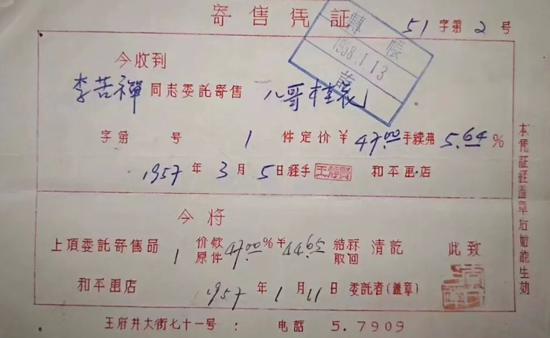 寄售凭証
51 字第 2 号
轉帳
1958.1.13
今收到
李苦禅 同志委託寄售 八哥
字第 号 1 件定价￥47.00手续费 5.64%
1957 年 3 月 5 日经手 和平画店
今将
上項委託寄售品 1 价款原件 47.00%￥44.65 結算取回 清訖 此致
和平画店 1957 年 1 月 11 日 委託者(盖章)
王府井大街七十一号: 电話 5.7909
本凭証经盖章后始能生効